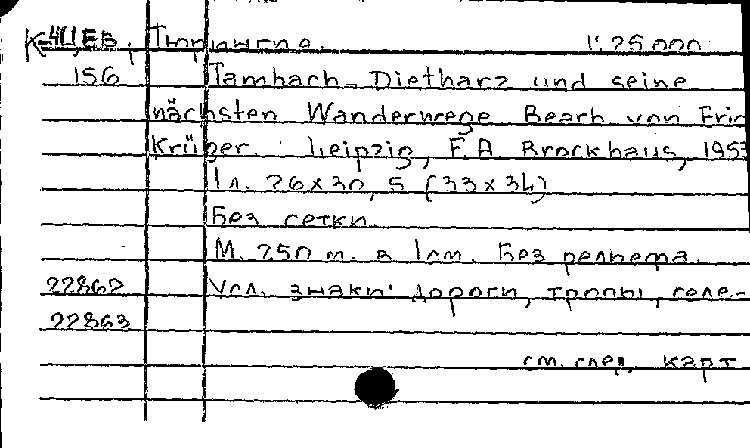 К-4ЦЕВ, Тюрингия. 1:25.000
156 Tambach-Dietharz und seine
nächsten Wanderwege Bearb von Eric
Krüger. Leipzig, F.A Brockhaus, 1953
1 л. 26x30,5 (33x34)
Без сетки.
М. 250 м. в 1 см. Без рельефа.
22862 Усл. знаки: дороги, тропы, селе-
22863
см. след. карт